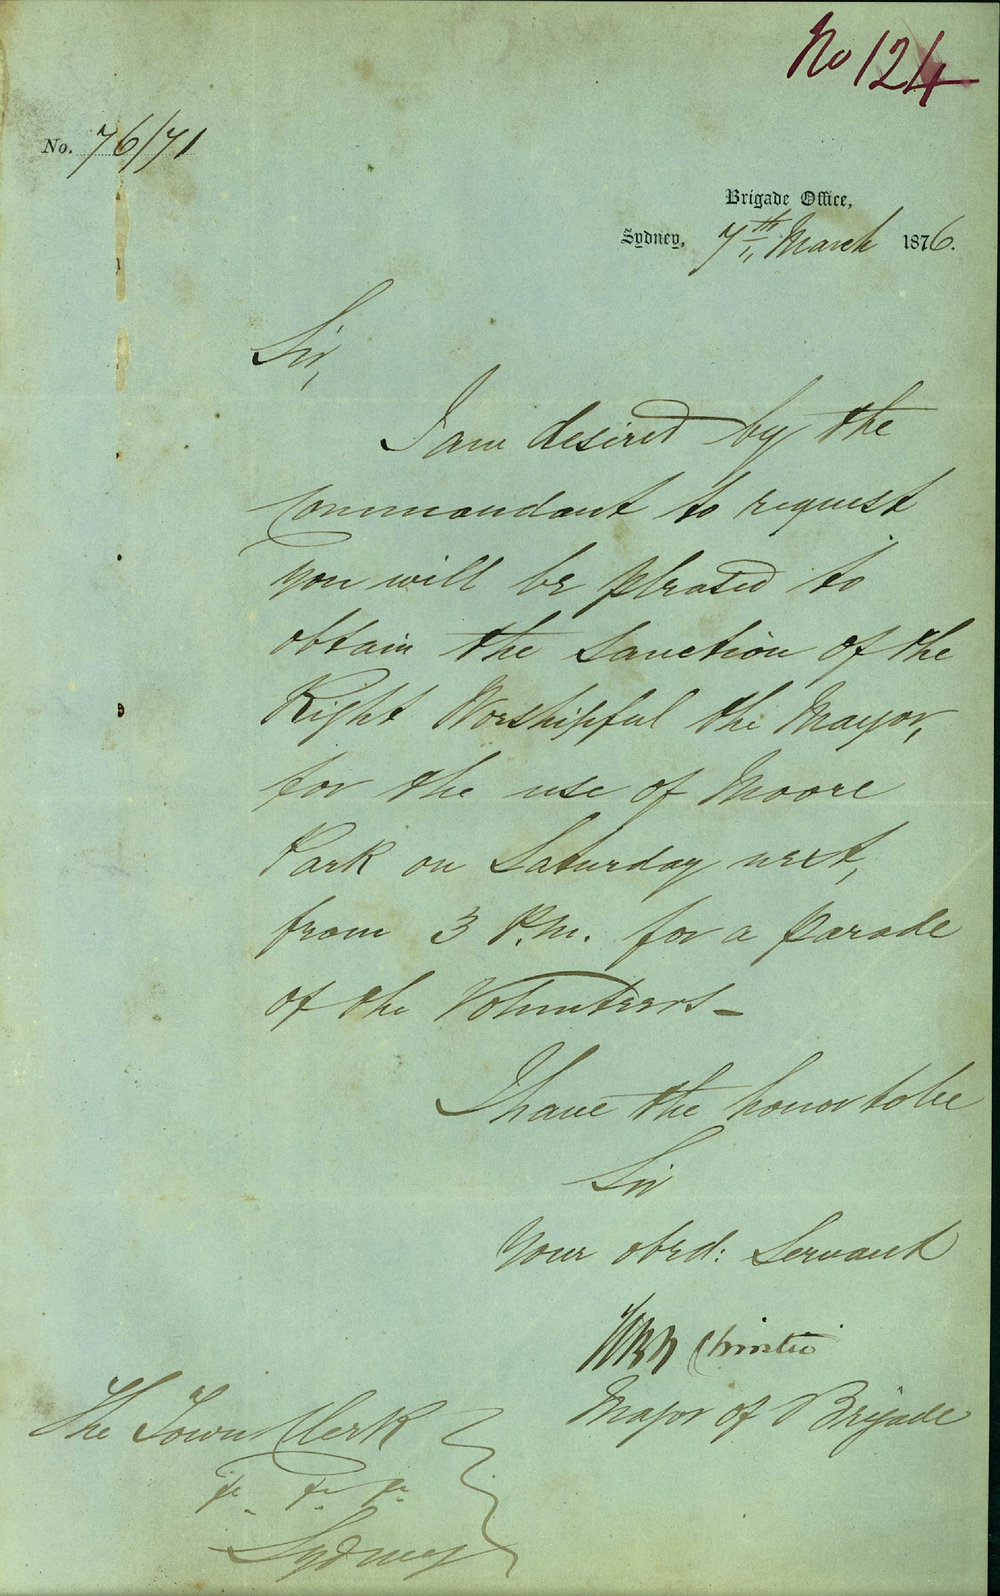 No 124
No. 76/71
Brigade Office,
Sydney, 7th March 1876.
Sir,
I am desired by the
Commandant to request
you will be pleased to
obtain the sanction of the
Right Worshipful the Mayor,
for the use of Moore
Park on Saturday next,
from 3 P.M. for a parade
of the Volunteers –
I have the honor to be
Sir
Your obed: Servant
Christie
Major of Brigade
The Town Clerk
Sydney